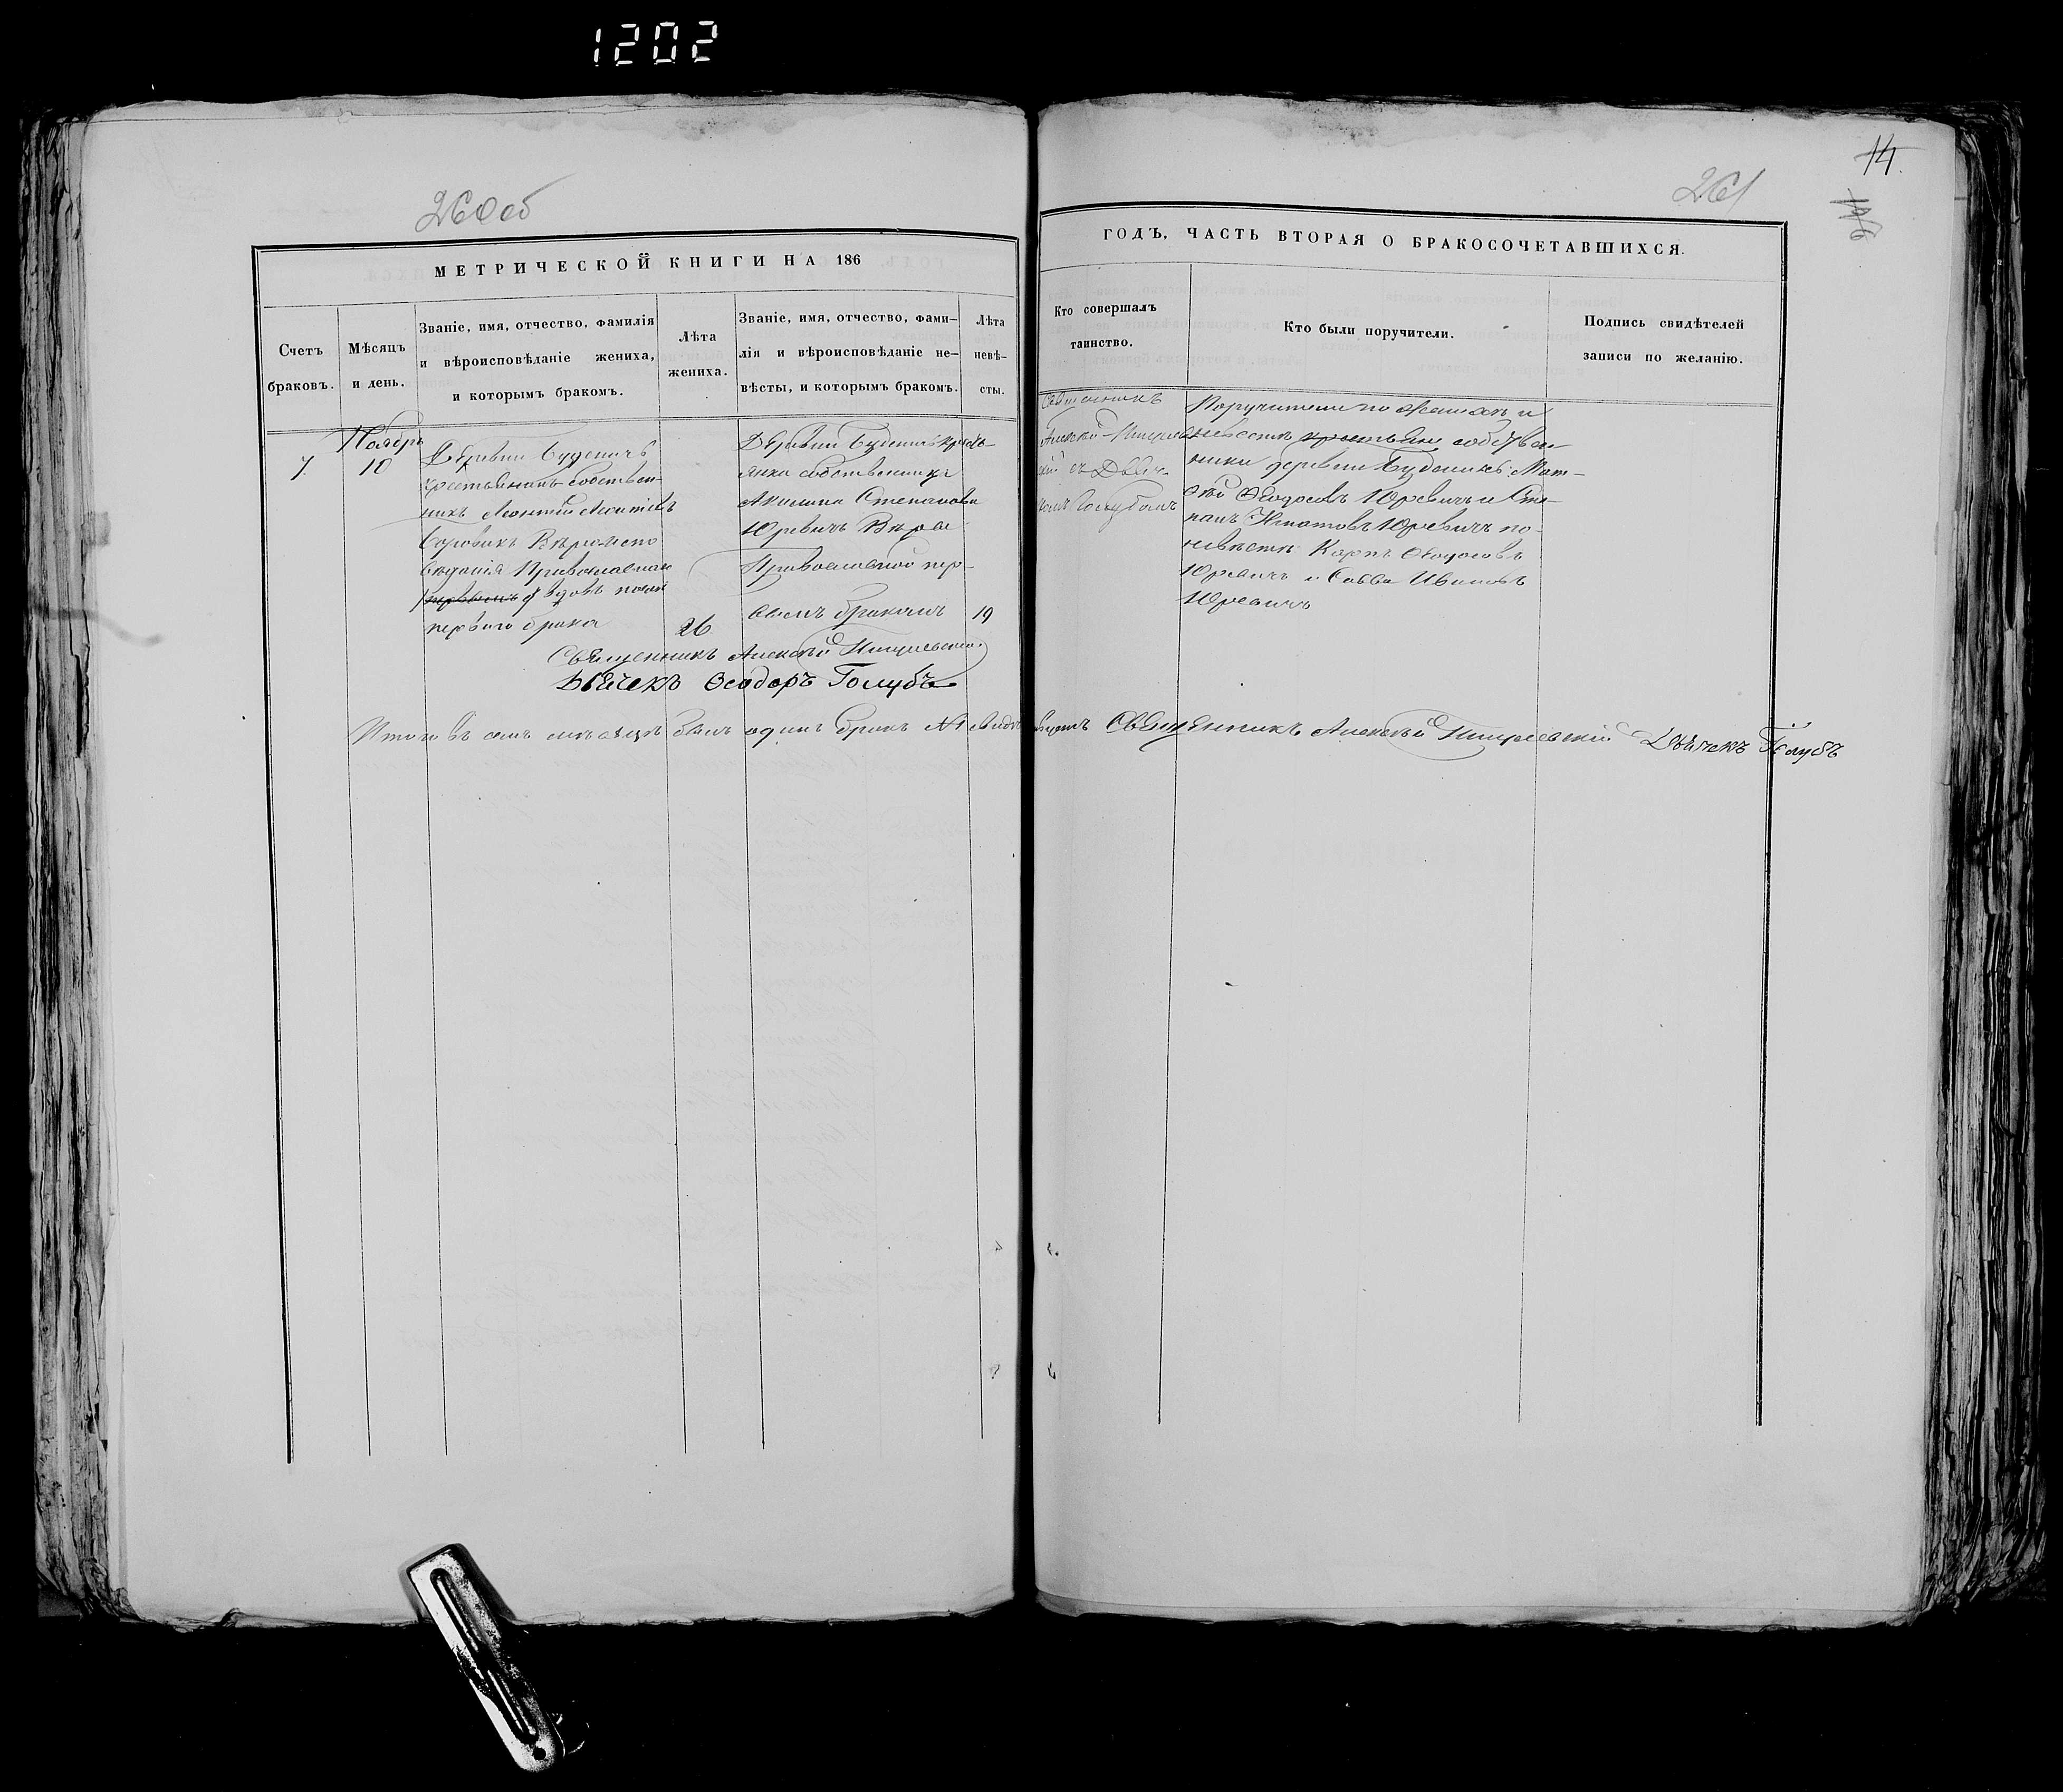 1202
14.
260об
261
МЕТРИЧЕСКОЙ КНИГИ НА 186
ГОДЪ, ЧАСТЬ ВТОРАЯ О БРАКОСОЧЕТАВШИХСЯ.
Счетъ
браковъ.
Мѣсяцъ
и день.
Званіе, имя, отчество, фамилія
и вѣроисповѣданіе жениха,
и которымъ бракомъ.
Лѣта
жениха.
Званіе, имя, отчество, фами–
лія и вѣроисповѣданіе не–
вѣсты, и которымъ бракомъ.
Лѣта
невѣ–
сты.
Кто совершалъ
таинство.
Кто были поручители.
Подпись свидѣтелей
записи по желанію.
7.
Ноябрь
10
Деревни Буденичъ
крестьянинъ собствен–
никъ Леонтій
Боровикъ Вѣроиспо
вѣданія Православнаго
первымъ вдовъ послѣ
перваго брака
26
Деревни Буденичъ кресть–
янка собственница
Акилина Степанова
Юревичъ Вѣры
Православной пер–
вымъ бракомъ
19
Священникъ
Алексѣй
съ Дьяч–
комъ Голубомъ
Поручители по женихѣ и
невѣстѣ крестьяне собствен–
ники деревни Буденичъ: Мат–
фѣй Ѳеодосіевъ Юревичъ и Сте–
панъ Игнатовъ Юревичъ по
невѣстѣ Карпъ Ѳеодосовъ
Юревичъ и Савва Ивановъ
Юревичъ
Священникъ Алексѣй
Дьячекъ Ѳеодоръ Голубъ
Итого въ семъ мѣсяцѣ былъ одинъ бракъ №1 свидѣтельствуетъ Священникъ Алексѣй Дьячекъ Голубъ